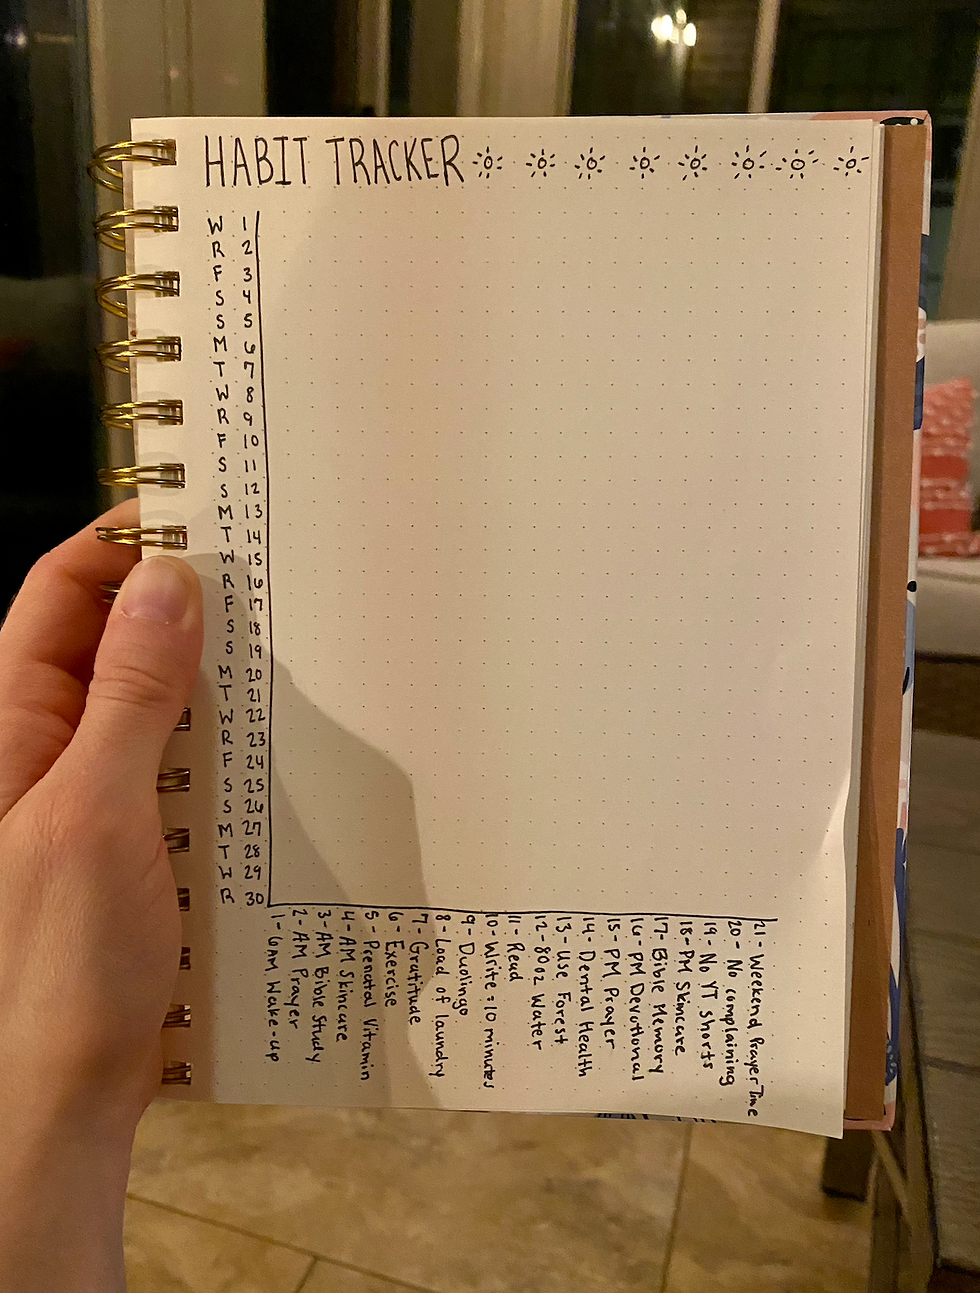 HABIT TRACKER
W 1
R 2
F 3
S 4
S 5
M 6
T 7
W 8
R 9
F 10
S 11
S 12
M 13
T 14
W 15
R 16
F 17
S 18
S 19
M 20
T 21
W 22
R 23
F 24
S 25
S 26
M 27
T 28
W 29
R 30
1- 6AM Wake-up
2- AM Prayer
3- AM Bible Study
4- AM Skincare
5- Prenatal Vitamin
6- Exercise
7- Gratitude
8- Load of laundry
9- Duolingo
10- Write :10 minutes
11- Read
12- 80oz Water
13- Use Forest
14- Dental Health
15- PM Prayer
16- PM Devotional
17- Bible Memory
18- PM Skincare
19- No YT shorts
20- No complaining
21- Weekend Prayer Time